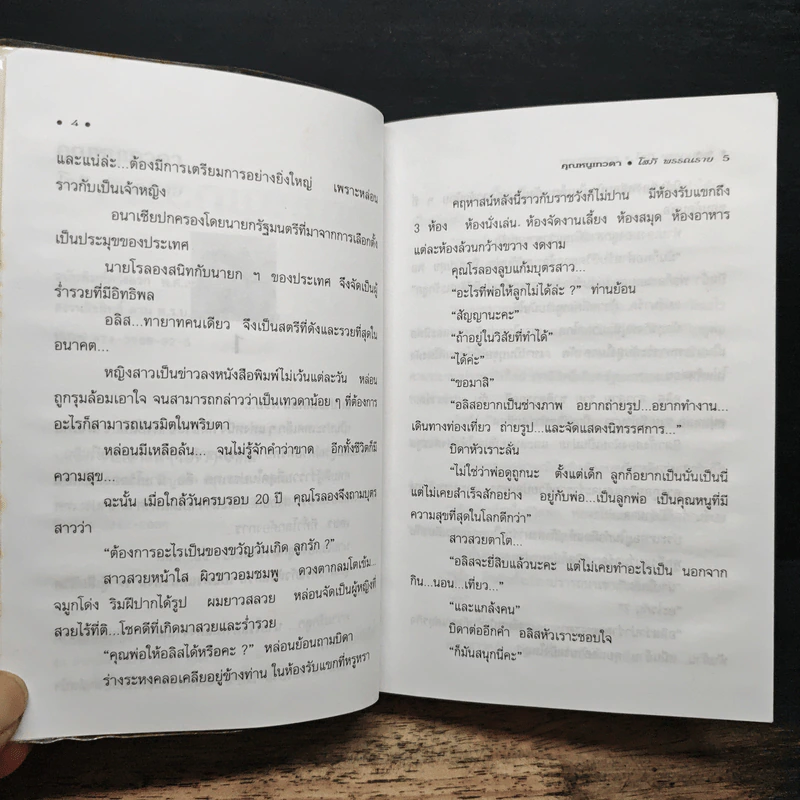 • 4 •
และแน่ล่ะ...ต้องมีการเตรียมการอย่างยิ่งใหญ่ เพราะหล่อน
ราวกับเป็นเจ้าหญิง
อนาเซียปกครองโดยนายกรัฐมนตรีที่มาจากการเลือกตั้ง
เป็นประมุขของประเทศ
นายโรลองสนิทกับนายก ฯ ของประเทศ จึงจัดเป็นผู้
ร่ำรวยที่มีอิทธิพล
อลิส...ทายาทคนเดียว จึงเป็นสตรีที่ดังและรวยที่สุดใน
อนาคต...
หญิงสาวเป็นข่าวลงหนังสือพิมพ์ไม่เว้นแต่ละวัน หล่อน
ถูกรุมล้อมเอาใจ จนสามารถกล่าวว่าเป็นเทวดาน้อย ๆ ที่ต้องการ
อะไรก็สามารถเนรมิตในพริบตา
หล่อนมีเหลือล้น... จนไม่รู้จักคำว่าขาด อีกทั้งชีวิตก็มี
ความสุข...
ฉะนั้น เมื่อใกล้วันครบรอบ 20 ปี คุณโรลองจึงถามบุตร
สาวว่า
“ต้องการอะไรเป็นของขวัญวันเกิด ลูกรัก ?”
สาวสวยหน้าใส ผิวขาวอมชมพู ดวงตากลมโตเข้ม...
จมูกโด่ง ริมฝีปากได้รูป ผมยาวสลวย หล่อนจัดเป็นผู้หญิงที่
สวยไร้ที่ติ...โชคดีที่เกิดมาสวยและร่ำรวย
“คุณพ่อให้อลิสได้หรือคะ ?” หล่อนย้อนถามบิดา
ร่างระหงคลอเคลียอยู่ข้างท่าน ในห้องรับแขกที่หรูหรา
คุณหนูเทวดา • โสภี พรรณราย 5
คฤหาสน์หลังนี้ราวกับราชวังก็ไม่ปาน มีห้องรับแขกถึง
3 ห้อง ห้องนั่งเล่น ห้องจัดงานเลี้ยง ห้องสมุด ห้องอาหาร
แต่ละห้องล้วนกว้างขวาง งดงาม
คุณโรลองลูบแก้มบุตรสาว...
“อะไรที่พ่อให้ลูกไม่ได้ล่ะ ?” ท่านย้อน
“สัญญานะคะ”
“ถ้าอยู่ในวิสัยที่ทำได้”
“ได้ค่ะ”
“ขอมาสิ”
“อลิสอยากเป็นช่างภาพ อยากถ่ายรูป...อยากทำงาน...
เดินทางท่องเที่ยว ถ่ายรูป...และจัดแสดงนิทรรศการ...”
บิดาหัวเราะลั่น
“ไม่ใช่ว่าพ่อดูถูกนะ ตั้งแต่เด็ก ลูกก็อยากเป็นนั่นเป็นนี่
แต่ไม่เคยสำเร็จสักอย่าง อยู่กับพ่อ...เป็นลูกพ่อ เป็นคุณหนูที่มี
ความสุขที่สุดในโลกดีกว่า”
สาวสวยตาโต...
“อลิสจะยี่สิบแล้วนะคะ แต่ไม่เคยทำอะไรเป็น นอกจาก
กิน...นอน...เที่ยว...”
“และแกล้งคน”
บิดาต่ออีกคำ อลิสหัวเราะชอบใจ
“ก็มันสนุกนี่คะ”